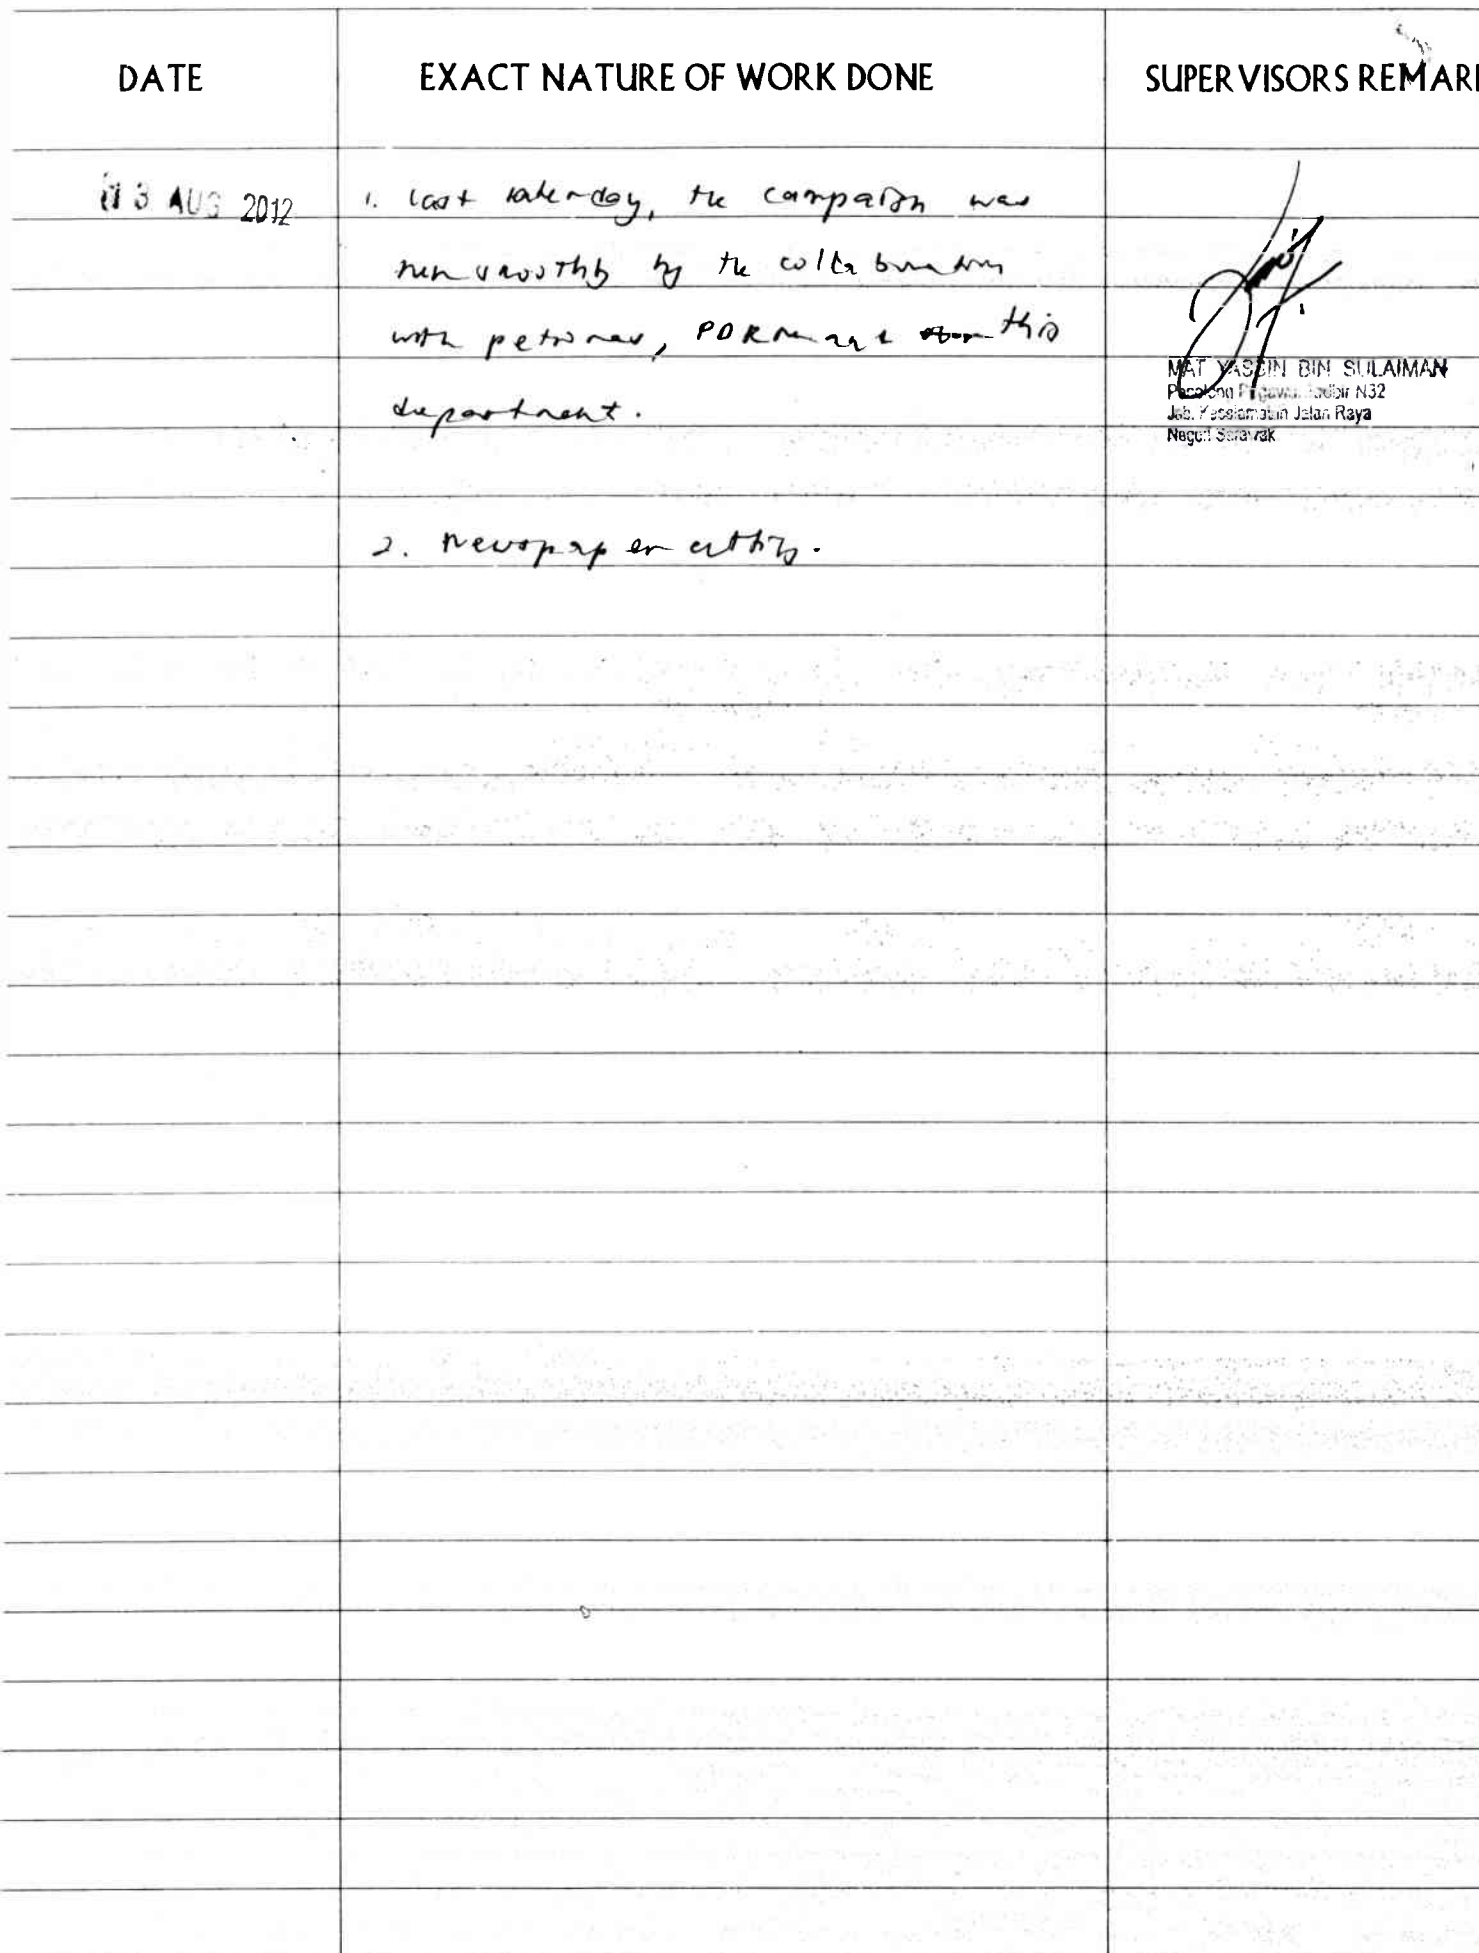 DATE
EXACT NATURE OF WORK DONE
SUPERVISORS REMARK
13 AUG 2012
1. last saterday, the campaign was
run smoothly by the collaboration
with petronas, PDRM and this
department.
2. Newspaper cutting.
MAT YASSIN BIN SULAIMAN
Penolong Pegawai Tadbir N32
Jab. Keselamatan Jalan Raya
Negeri Sarawak